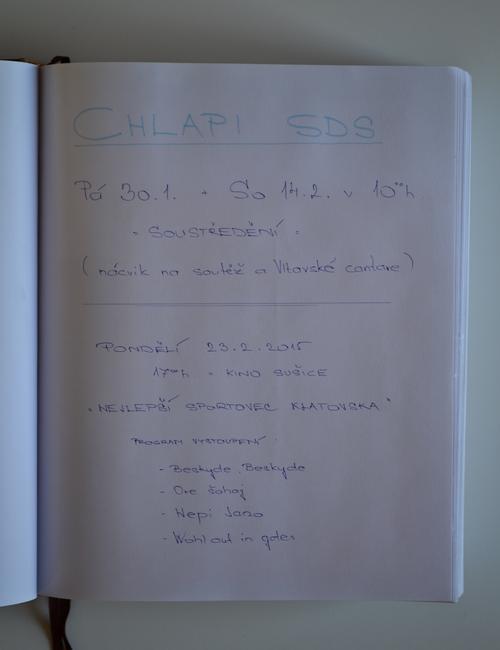 CHLAPI SDS
Pá 30.1. + So 14.2. v 10⁰⁰h
- SOUSTŘEDĚNÍ -
(nácvik na soutěž a Vltavské cantare)
PONDĚLÍ 23.2.2015
17⁰⁰h - KINO SUŠICE
"NEJLEPŠÍ SPORTOVEC KLATOVSKA"
PROGRAM VYSTOUPENÍ:
- Beskyde, Beskyde
- Ore šohaj
- Nepi Jano
- Wohl auf in